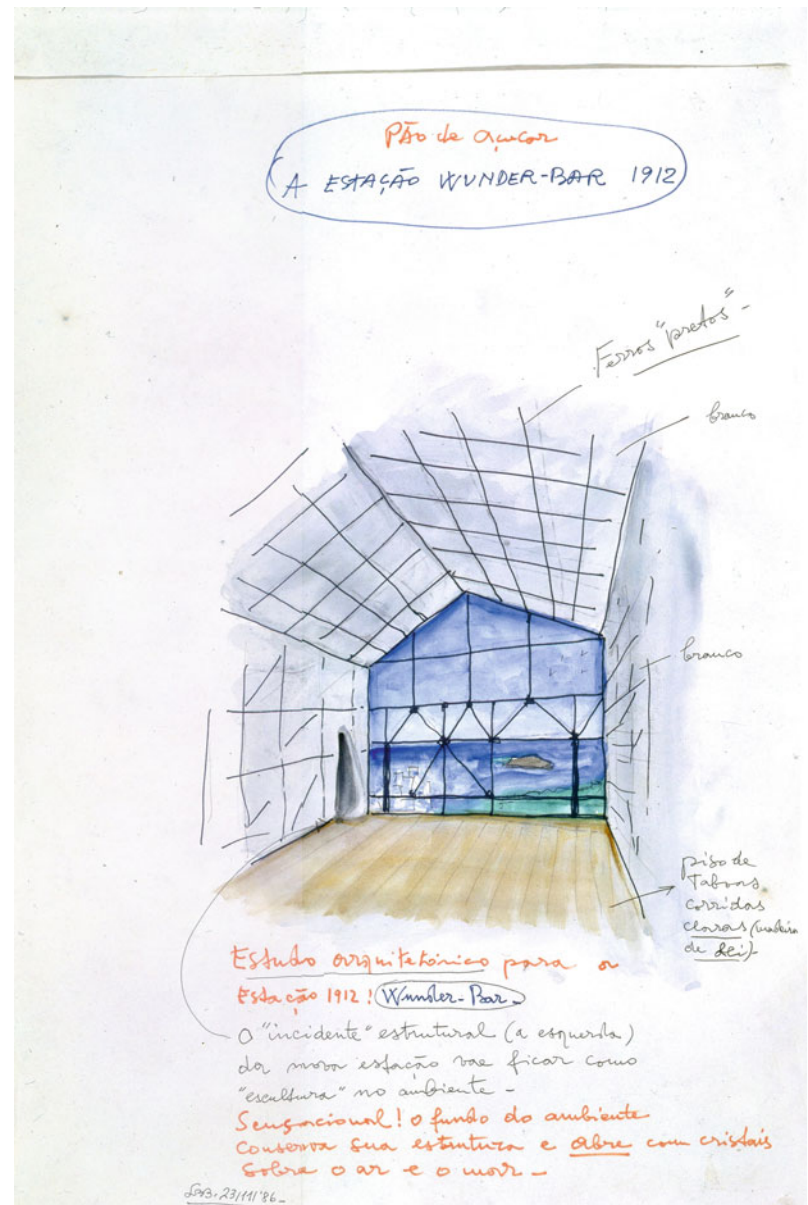 Pão de açucar
A ESTAÇÃO WUNDER-BAR 1912
Ferros "pretos" -
branco
branco
piso de
Taboas
corridas
claras (madeira
de Lei) -
Estudo arquitetônico para a
Estação 1912! Wunder-Bar -
O "incidente" estrutural (a esquerda)
da nova estação vae ficar como
"escultura" no ambiente -
Sensacional! o fundo do ambiente
conserva sua estrutura e abre com cristais
sobre o ar e o mar -
23/11/'86 -